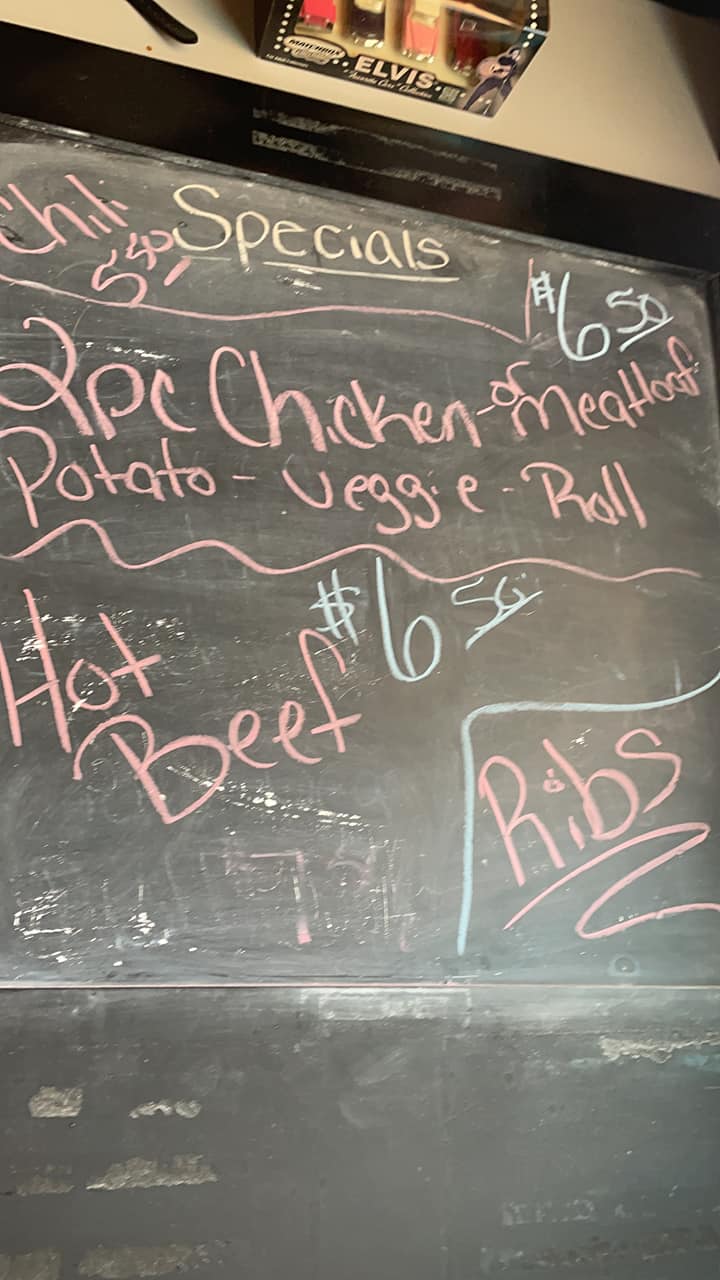 MATCHBOX
ELVIS
Chili Specials
5 50
$6 50
2pc Chicken - or meatloaf
Potato - veggie - Roll
$6 50
Hot
Beef
Ribs